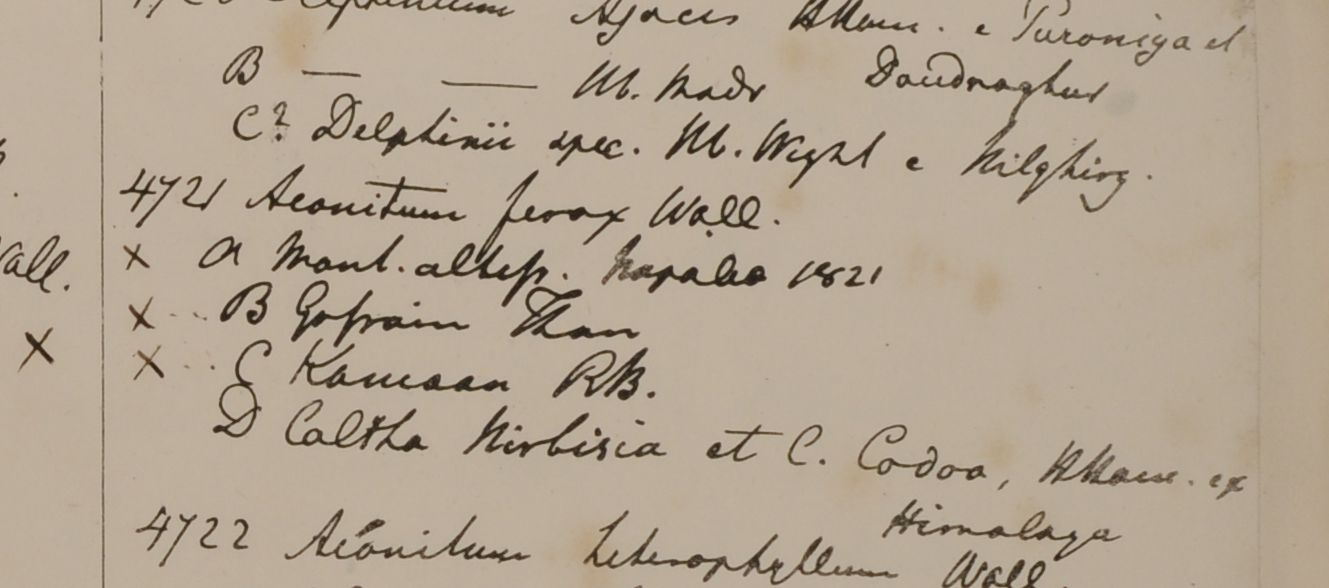 Delphinium Ajacis HHam. e Puroniya et
B — — M. Madr Daudnaghur
C? Delphinii spec. M. Wight e Nilghirg.
4721 Aconitum ferox Wall.
all. × a Mont. altess. Napalia 1821
× B Gossain Than
× × C Kamaon RB.
D Caltha Nirbisia et C. Codoa, HHam. ex
Himalaya
4722 Aconitum heterophyllum Wall.